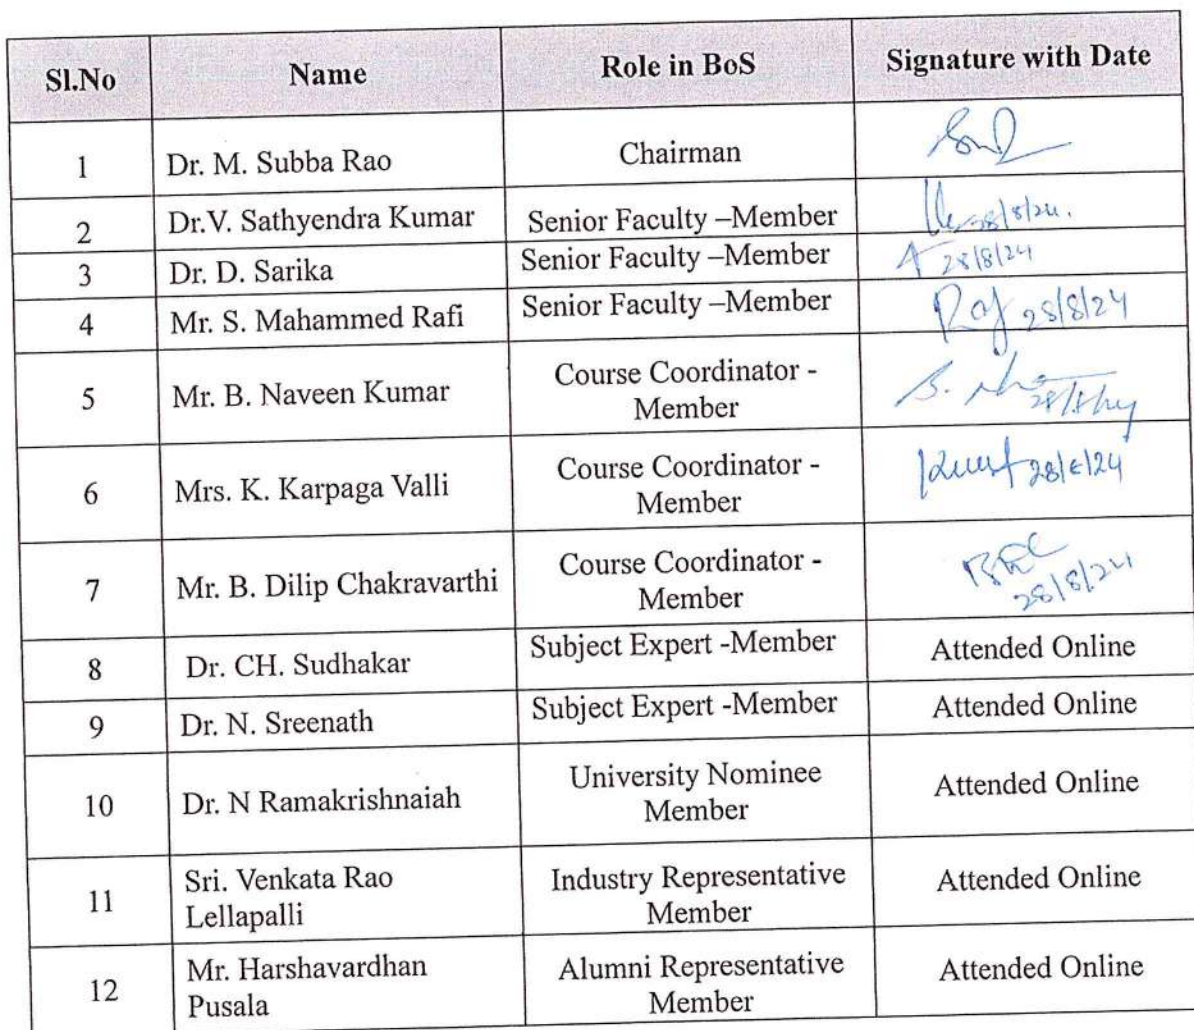 Sl.No Name Role in BoS Signature with Date
1 Dr. M. Subba Rao Chairman
2 Dr.V. Sathyendra Kumar Senior Faculty –Member 28/8/24.
3 Dr. D. Sarika Senior Faculty –Member 28/8/24
4 Mr. S. Mahammed Rafi Senior Faculty –Member 28/8/24
5 Mr. B. Naveen Kumar Course Coordinator -
Member
6 Mrs. K. Karpaga Valli Course Coordinator -
Member 28/8/24
7 Mr. B. Dilip Chakravarthi Course Coordinator -
Member 28/8/24
8 Dr. CH. Sudhakar Subject Expert -Member Attended Online
9 Dr. N. Sreenath Subject Expert -Member Attended Online
10 Dr. N Ramakrishnaiah University Nominee
Member Attended Online
11 Sri. Venkata Rao
Lellapalli Industry Representative
Member Attended Online
12 Mr. Harshavardhan
Pusala Alumni Representative
Member Attended Online